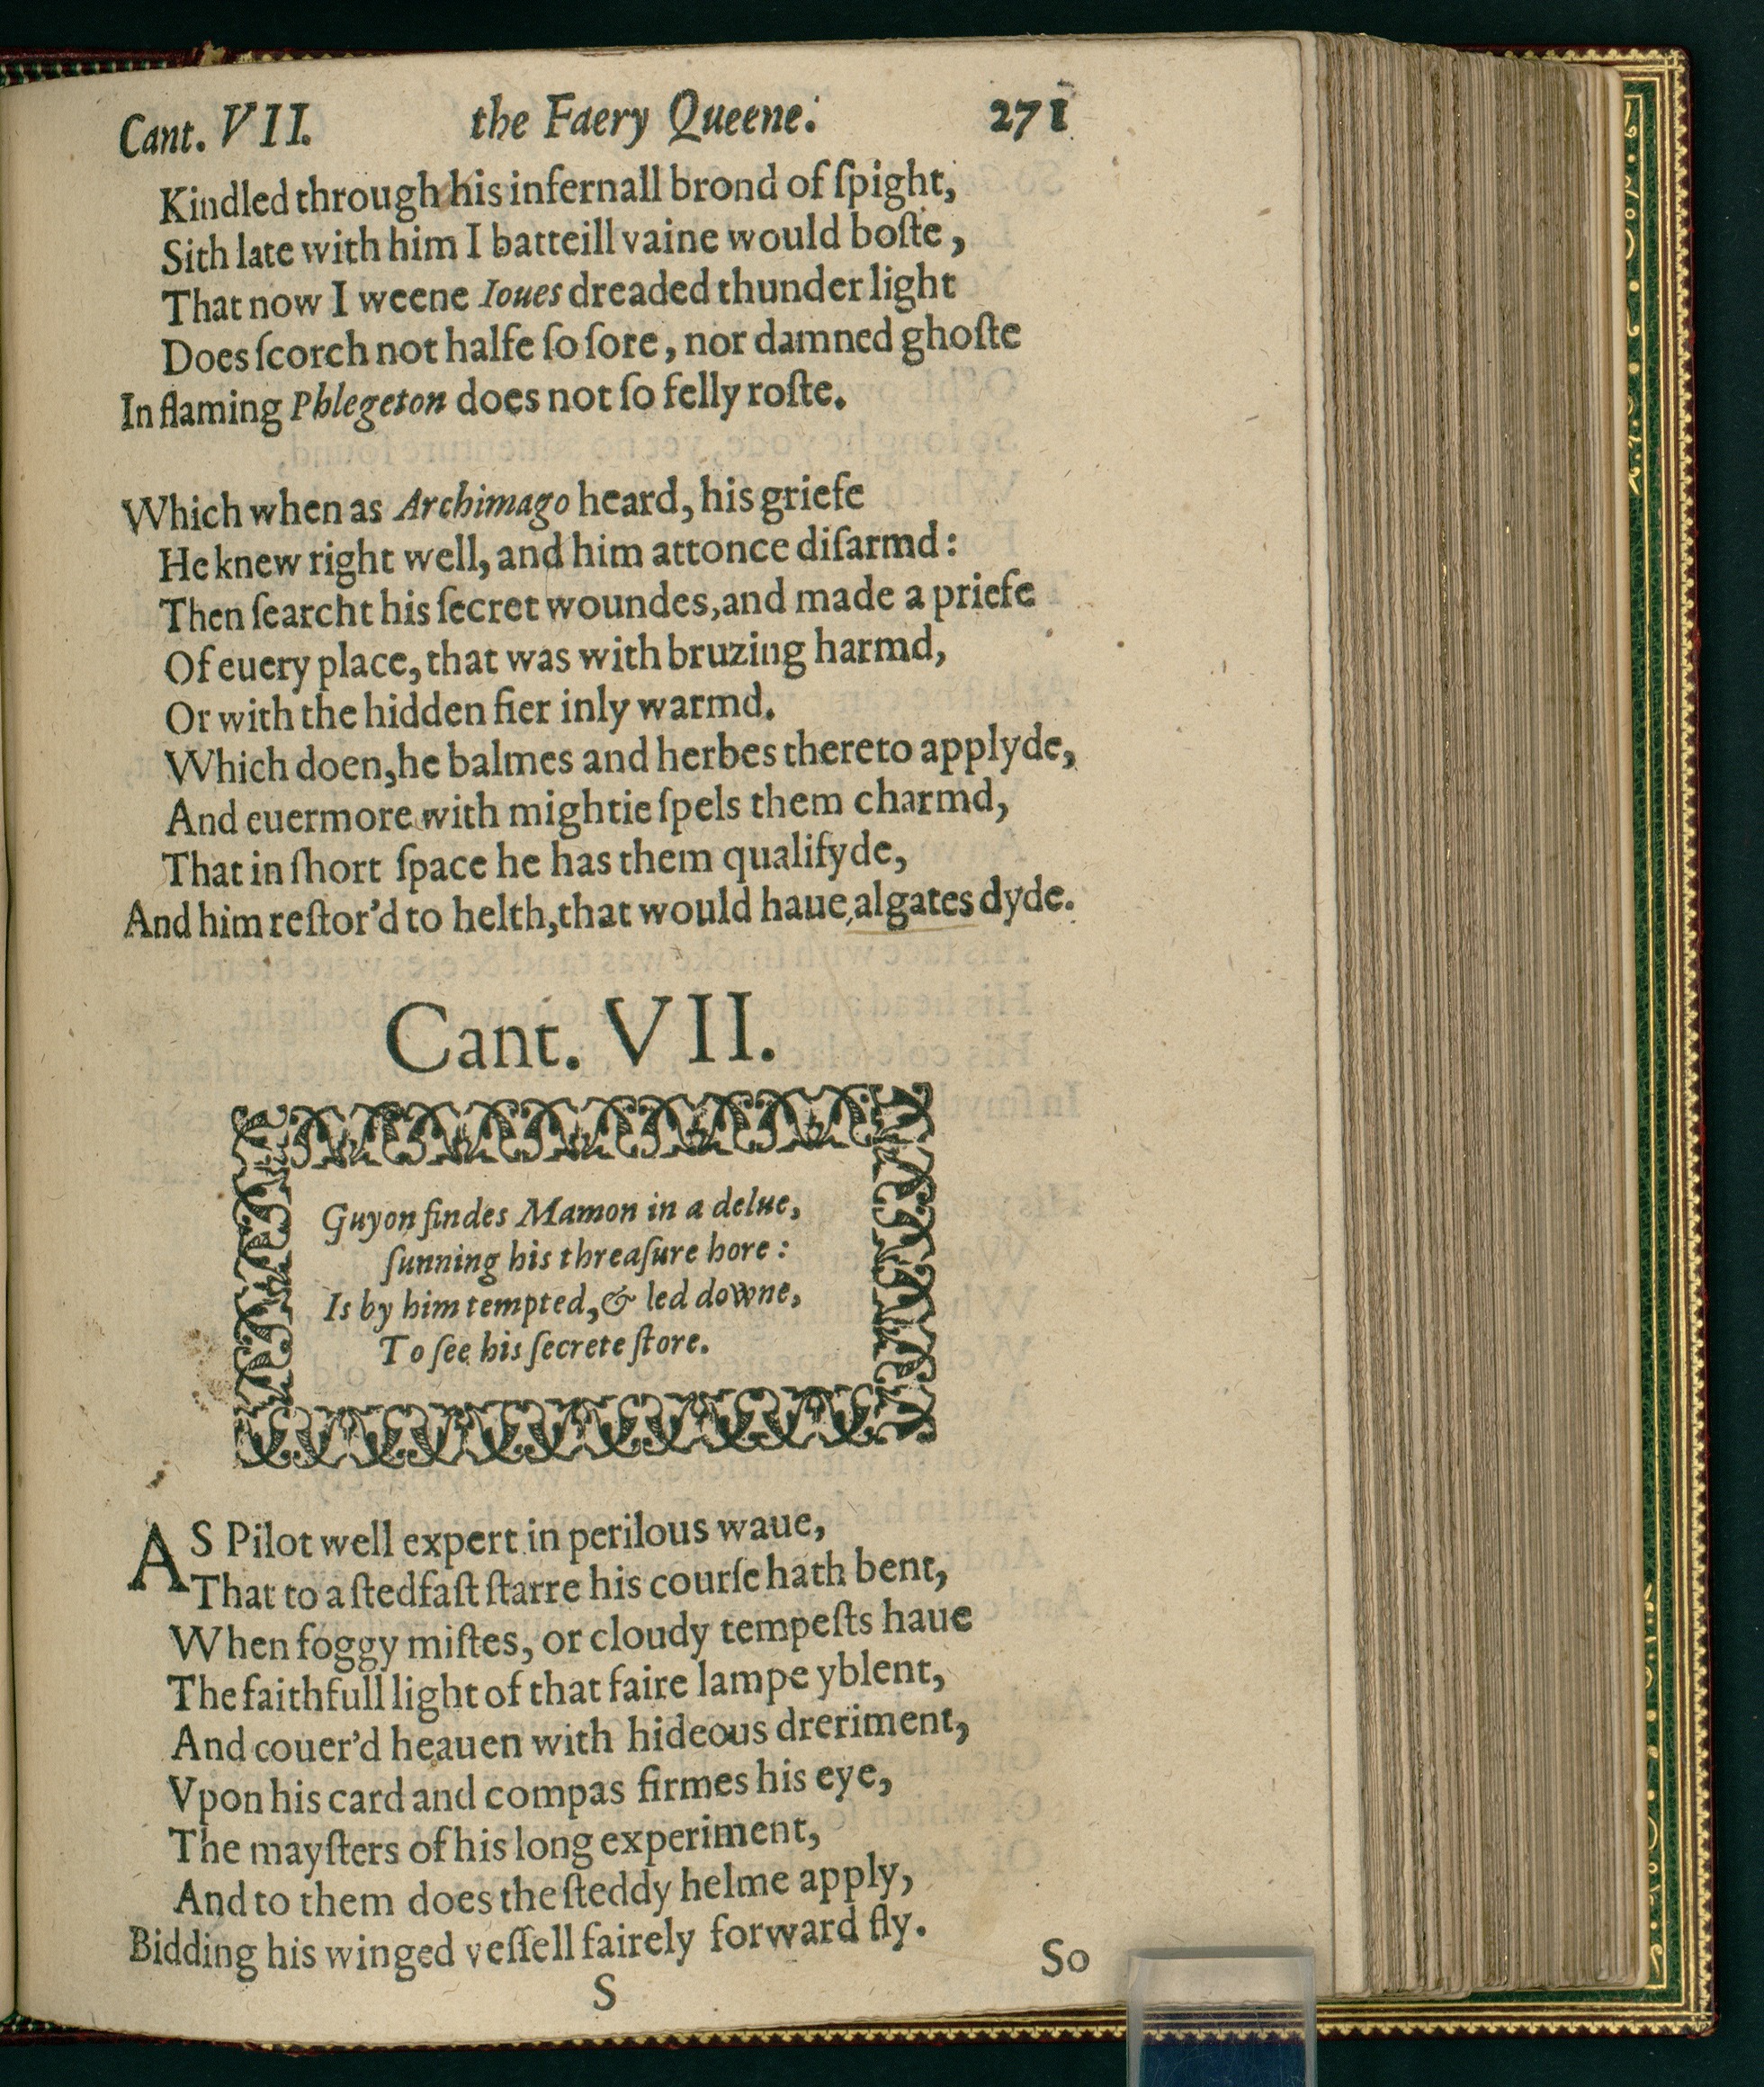 Cant. VII. the Faery Queene. 271
Kindled through his infernall brond of ſpight,
Sith late with him I batteill vaine would boſte,
That now I weene Ioues dreaded thunder light
Does ſcorch not halfe ſo ſore, nor damned ghoſte
In flaming Phlegeton does not ſo felly roſte.
Which when as Archimago heard, his griefe
He knew right well, and him attonce diſarmd:
Then ſearcht his ſecret woundes, and made a priefe
Of euery place, that was with bruzing harmd,
Or with the hidden fier inly warmd.
Which doen, he balmes and herbes thereto applyde,
And euermore with mightie ſpels them charmd,
That in ſhort ſpace he has them qualifyde,
And him reſtor'd to helth, that would haue algates dyde.
Cant. VII.
Guyon findes Mamon in a delue,
ſunning his threaſure hore:
Is by him tempted, & led downe,
To ſee his ſecrete ſtore.
AS Pilot well expert in perilous waue,
That to a ſtedfaſt ſtarre his courſe hath bent,
When foggy miſtes, or cloudy tempeſts haue
The faithfull light of that faire lampe yblent,
And couer'd heauen with hideous dreriment,
Vpon his card and compas firmes his eye,
The mayſters of his long experiment,
And to them does the ſteddy helme apply,
Bidding his winged veſſell fairely forward fly.
S So